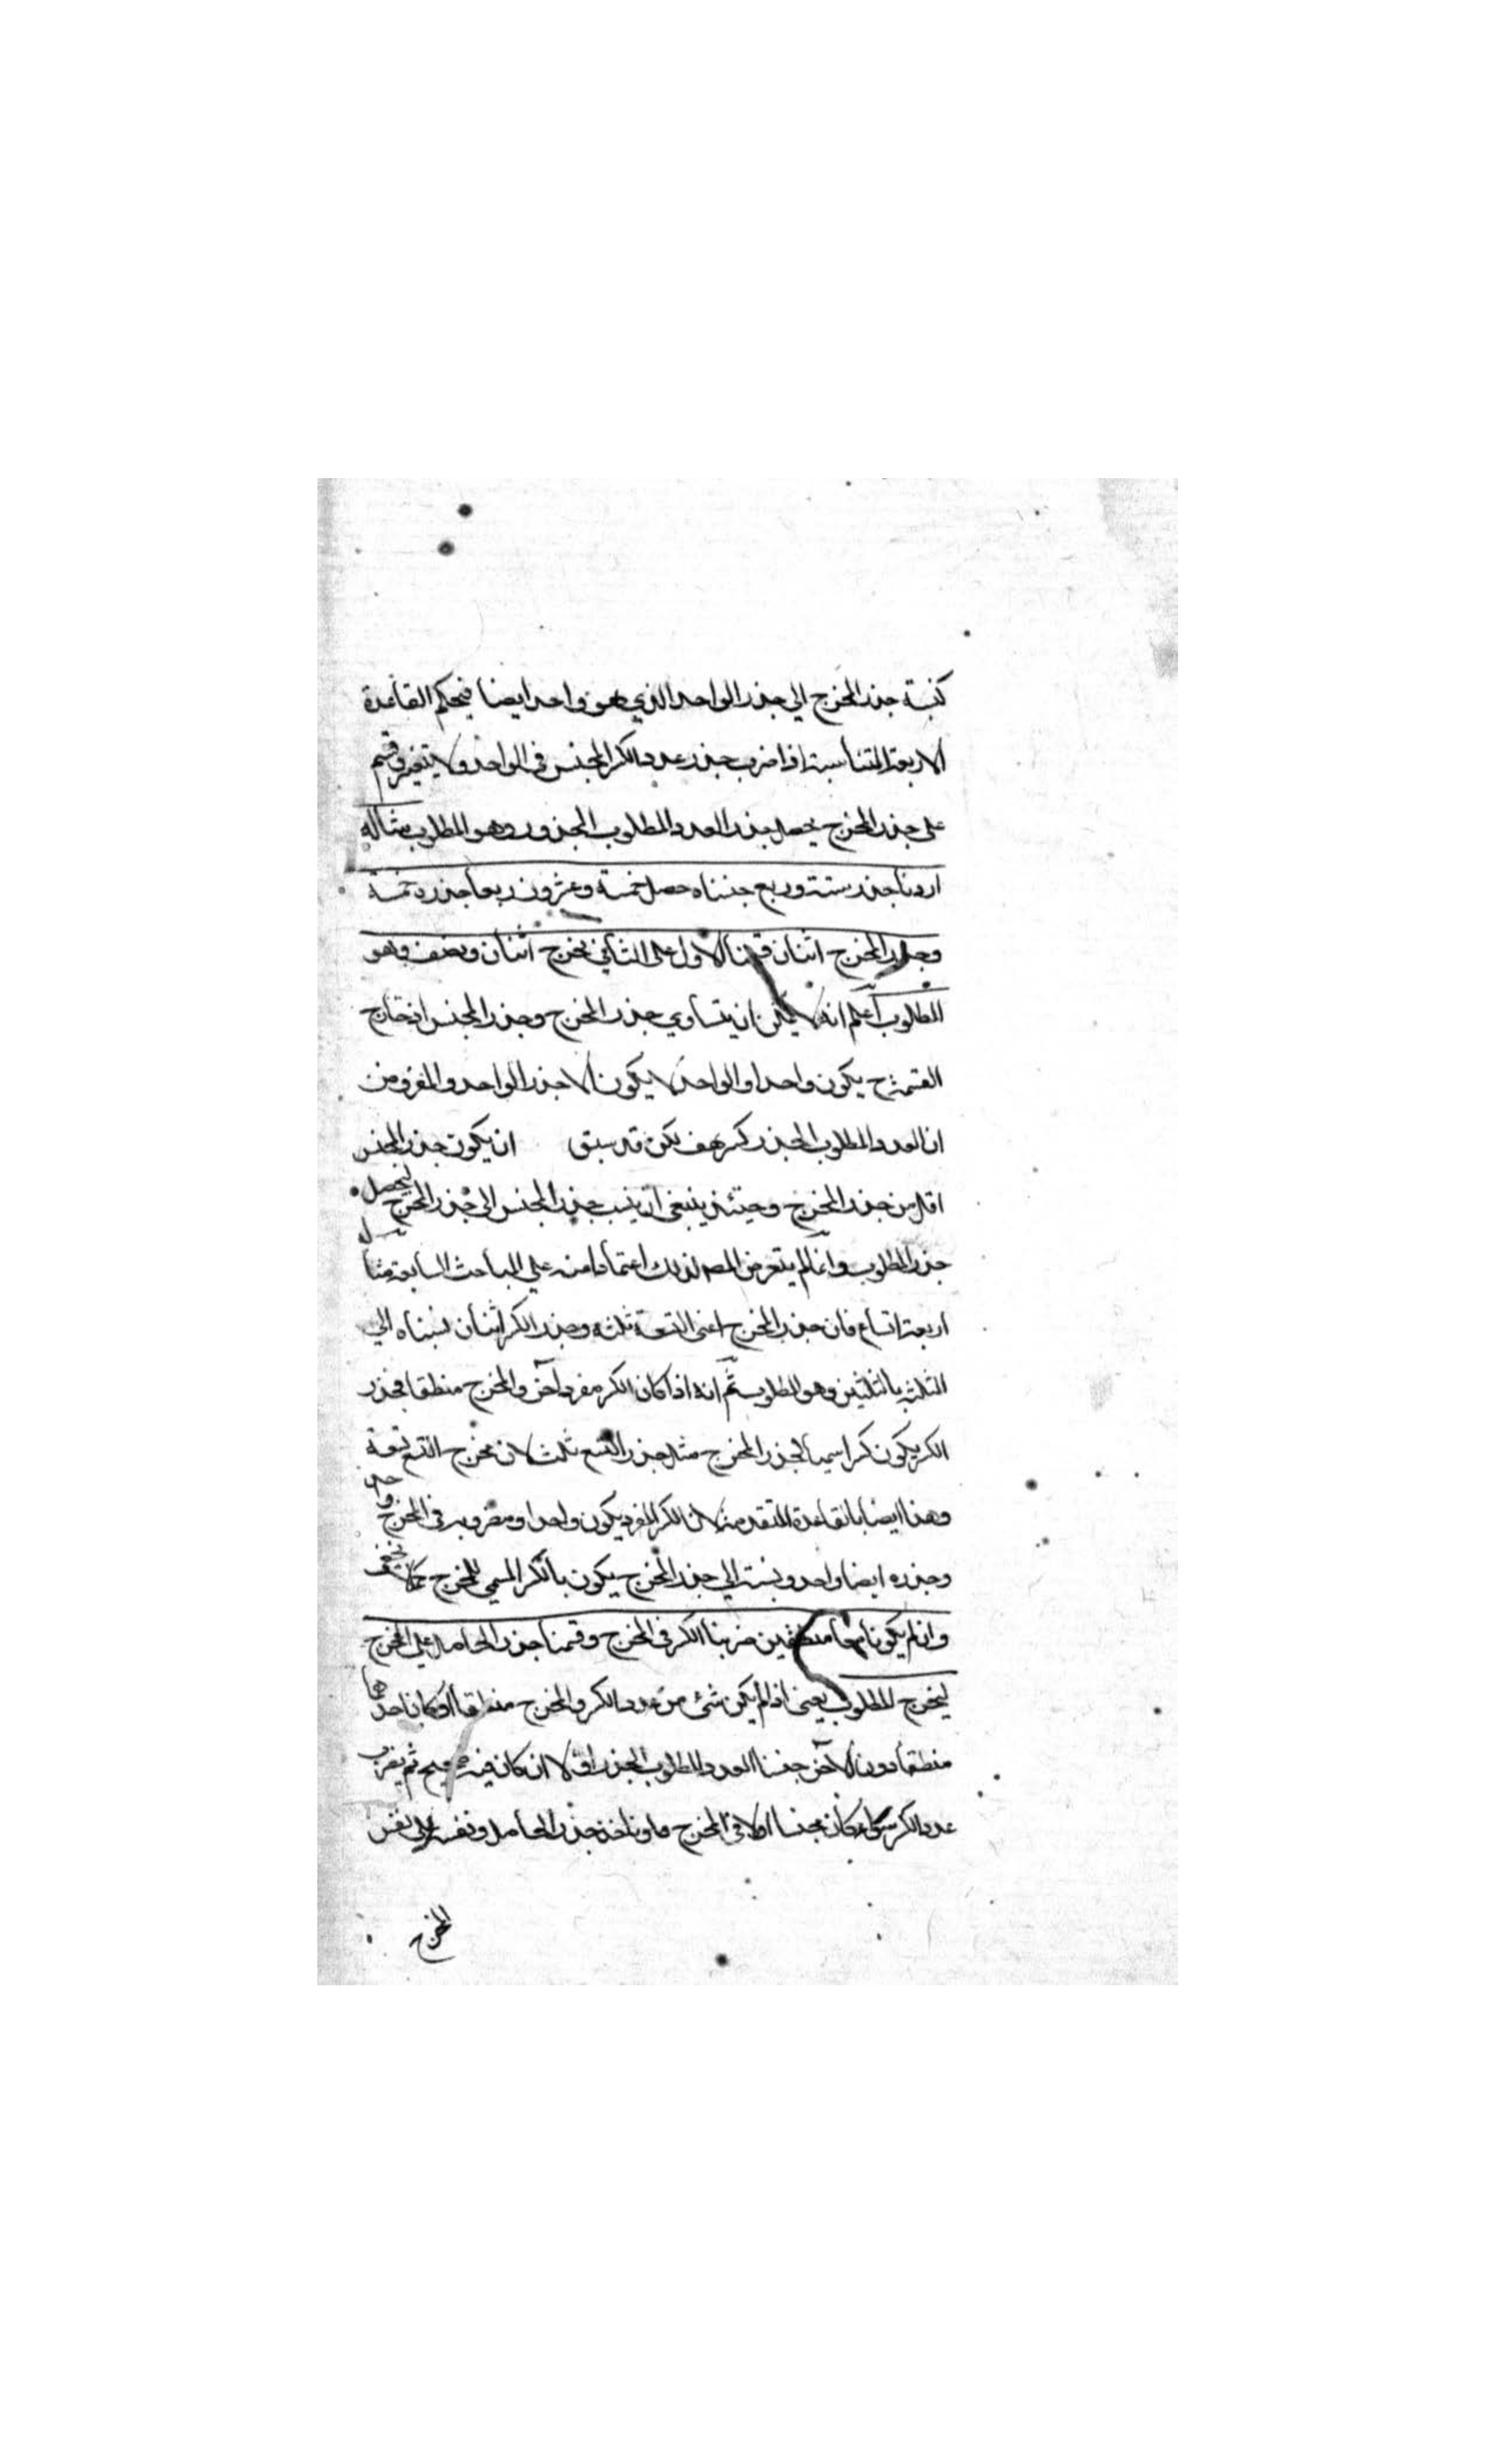 كنسبة جذر المخرج الي جذر الواحد الذي هو واحد ايضا فبحكم القاعدة
الاربعة المتناسبة اذا ضرب جذر عدد الكسر المجنس في الواحد ولا يتغير وقسم
على جذر المخرج يحصل جذر العدد المطلوب المجذور وهو المطلوب مثاله
اردنا جذر ستة وربع جنسناه حصل خمسة وعشرون ربعا جذره خمسة
وجذر المخرج اثنان قسمنا الاول على الثاني يخرج اثنان ونصف وهو
المطلوب اعلم انه لا يمكن ان يتساوي جذر المخرج وجذر المجنس اذ خارج
القسمة ح يكون واحدا والواحد لا يكون الا جذر الواحد والمفروض
ان العدد المطلوب الجذر كسر هف يكن قد سبق ان يكون جذر المجنس
اقل من جذر المخرج وحينئذ ينبغي ان ينسب جذر المجنس الى جذر المخرج ليحصل
جذر المطلوب وانما لم يتعرض المصـ لذلك اعتمادا منه علي المباحث السابقة مثل
اربعة اتساع فان جذر المخرج اعني التسعة ثلثه وجذر الكسر اثنان نسبناه الي
الثلثه بالثلثين وهو المطلوب ثم انه اذا كان الكسر مفردا والمخرج منطقا فجذر
الكسر يكون كسرا سميا لجذر المخرج مثل جذر التسع ثلث لان مخرج التسع تسعة
وهذا ايضا بالقاعدة المتقدمة لان الكسر المفرد يكون واحدا ومضروبه في المخرج واحد
وجذره ايضا واحد ونسبته الي جذر المخرج يكون بالكسر المسمي للمخرج كما لا يخفى
وان لم يكونا معا منطقين ضربنا الكسر في المخرج وقسمنا جذر الحاصل علي المخرج
ليخرج المطلوب يعني اذا لم يكن شئ من عدد الكسر والمخرج منطقا او كان احدهما
منطقا دون الآخر جنسنا العدد المطلوب الجذر اولا ان كان فيه صحيح ثم يضرب
عدد الكسر سواء كان مجنسا اولا في المخرج وناخذ جذر الحاصل ونقسمه على نفس
المخرج